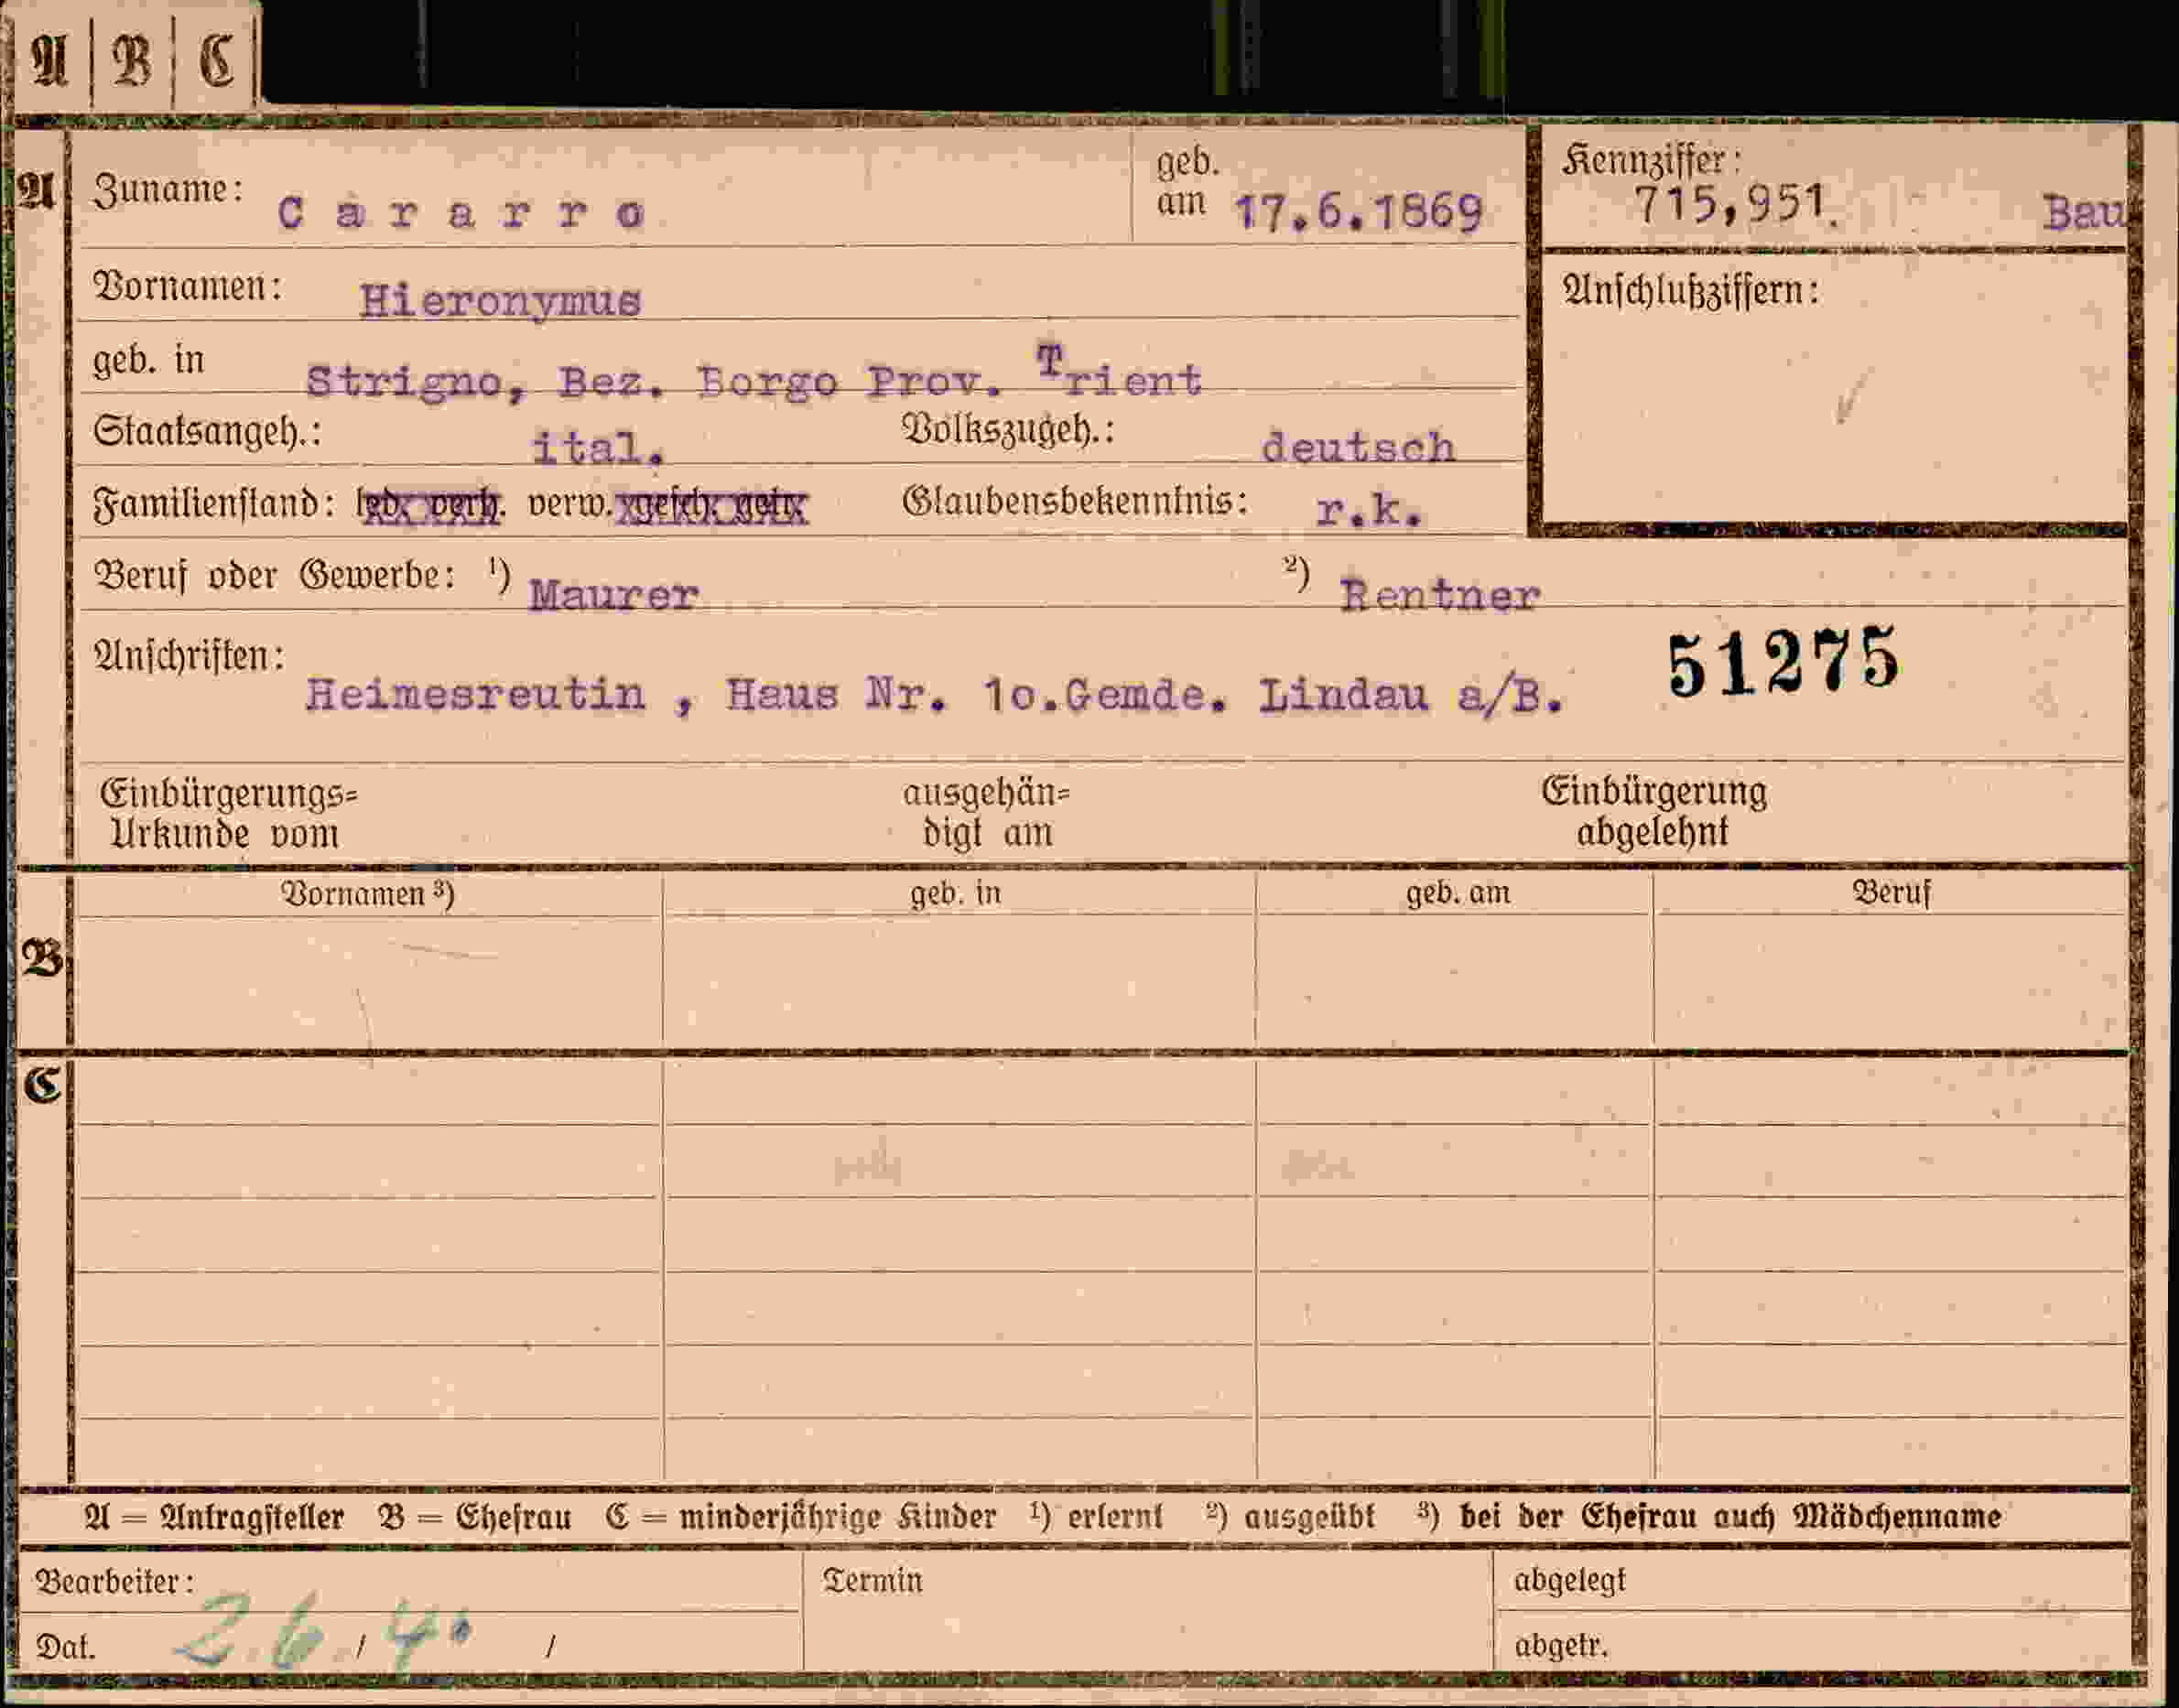 A | B | C
A
Zuname: Cararro
geb. am 17.6.1869
Kennziffer: 715,951. Bau
Vornamen: Hieronymus
Anschlußziffern:
geb. in Strigno, Bez. Borgo Prov. Trient
Staatsangeh.: ital. Volkszugeh.: deutsch
Familienstand: led. verh. verw. gesch. getr. Glaubensbekenntnis: r.k.
Beruf oder Gewerbe: ¹) Maurer ²) Rentner
51275
Anschriften: Heimesreutin , Haus Nr. 1o.Gemde. Lindau a/B.
Einbürgerungs=
Urkunde vom
ausgehän=
digt am
Einbürgerung
abgelehnt
Vornamen ³) geb. in geb. am Beruf
B
C
A = Antragsteller B = Ehefrau C = minderjährige Kinder ¹) erlernt ²) ausgeübt ³) bei der Ehefrau auch Mädchenname
Bearbeiter: Termin abgelegt
Dat. 2.6. / 40 / abgetr.